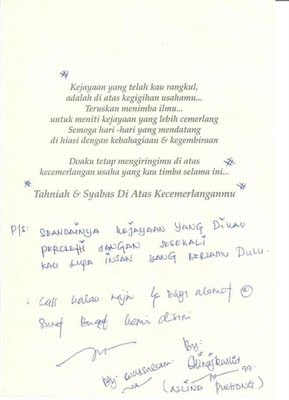 Kejayaan yang telah kau rangkul,
adalah di atas kegigihan usahamu...
Teruskan menimba ilmu...
untuk meniti kejayaan yang lebih cemerlang
Semoga hari -hari yang mendatang
di hiasi dengan kebahagiaan & kegembiraan
Doaku tetap mengiringimu di atas
kecemerlangan usaha yang kau timba selama ini...
Tahniah & Syabas Di Atas Kecemerlanganmu
P/S: SEANDAINYA KEJAYAAN YANG DIKAU
PEROLEHI JANGAN SESEKALI
KAU LUPA INSAN YANG BERSAMU DULU.
Call kalau rajin & bagi alamat
surat kami disini
By: wassalam By:
99
(ALINA PUCHONG)